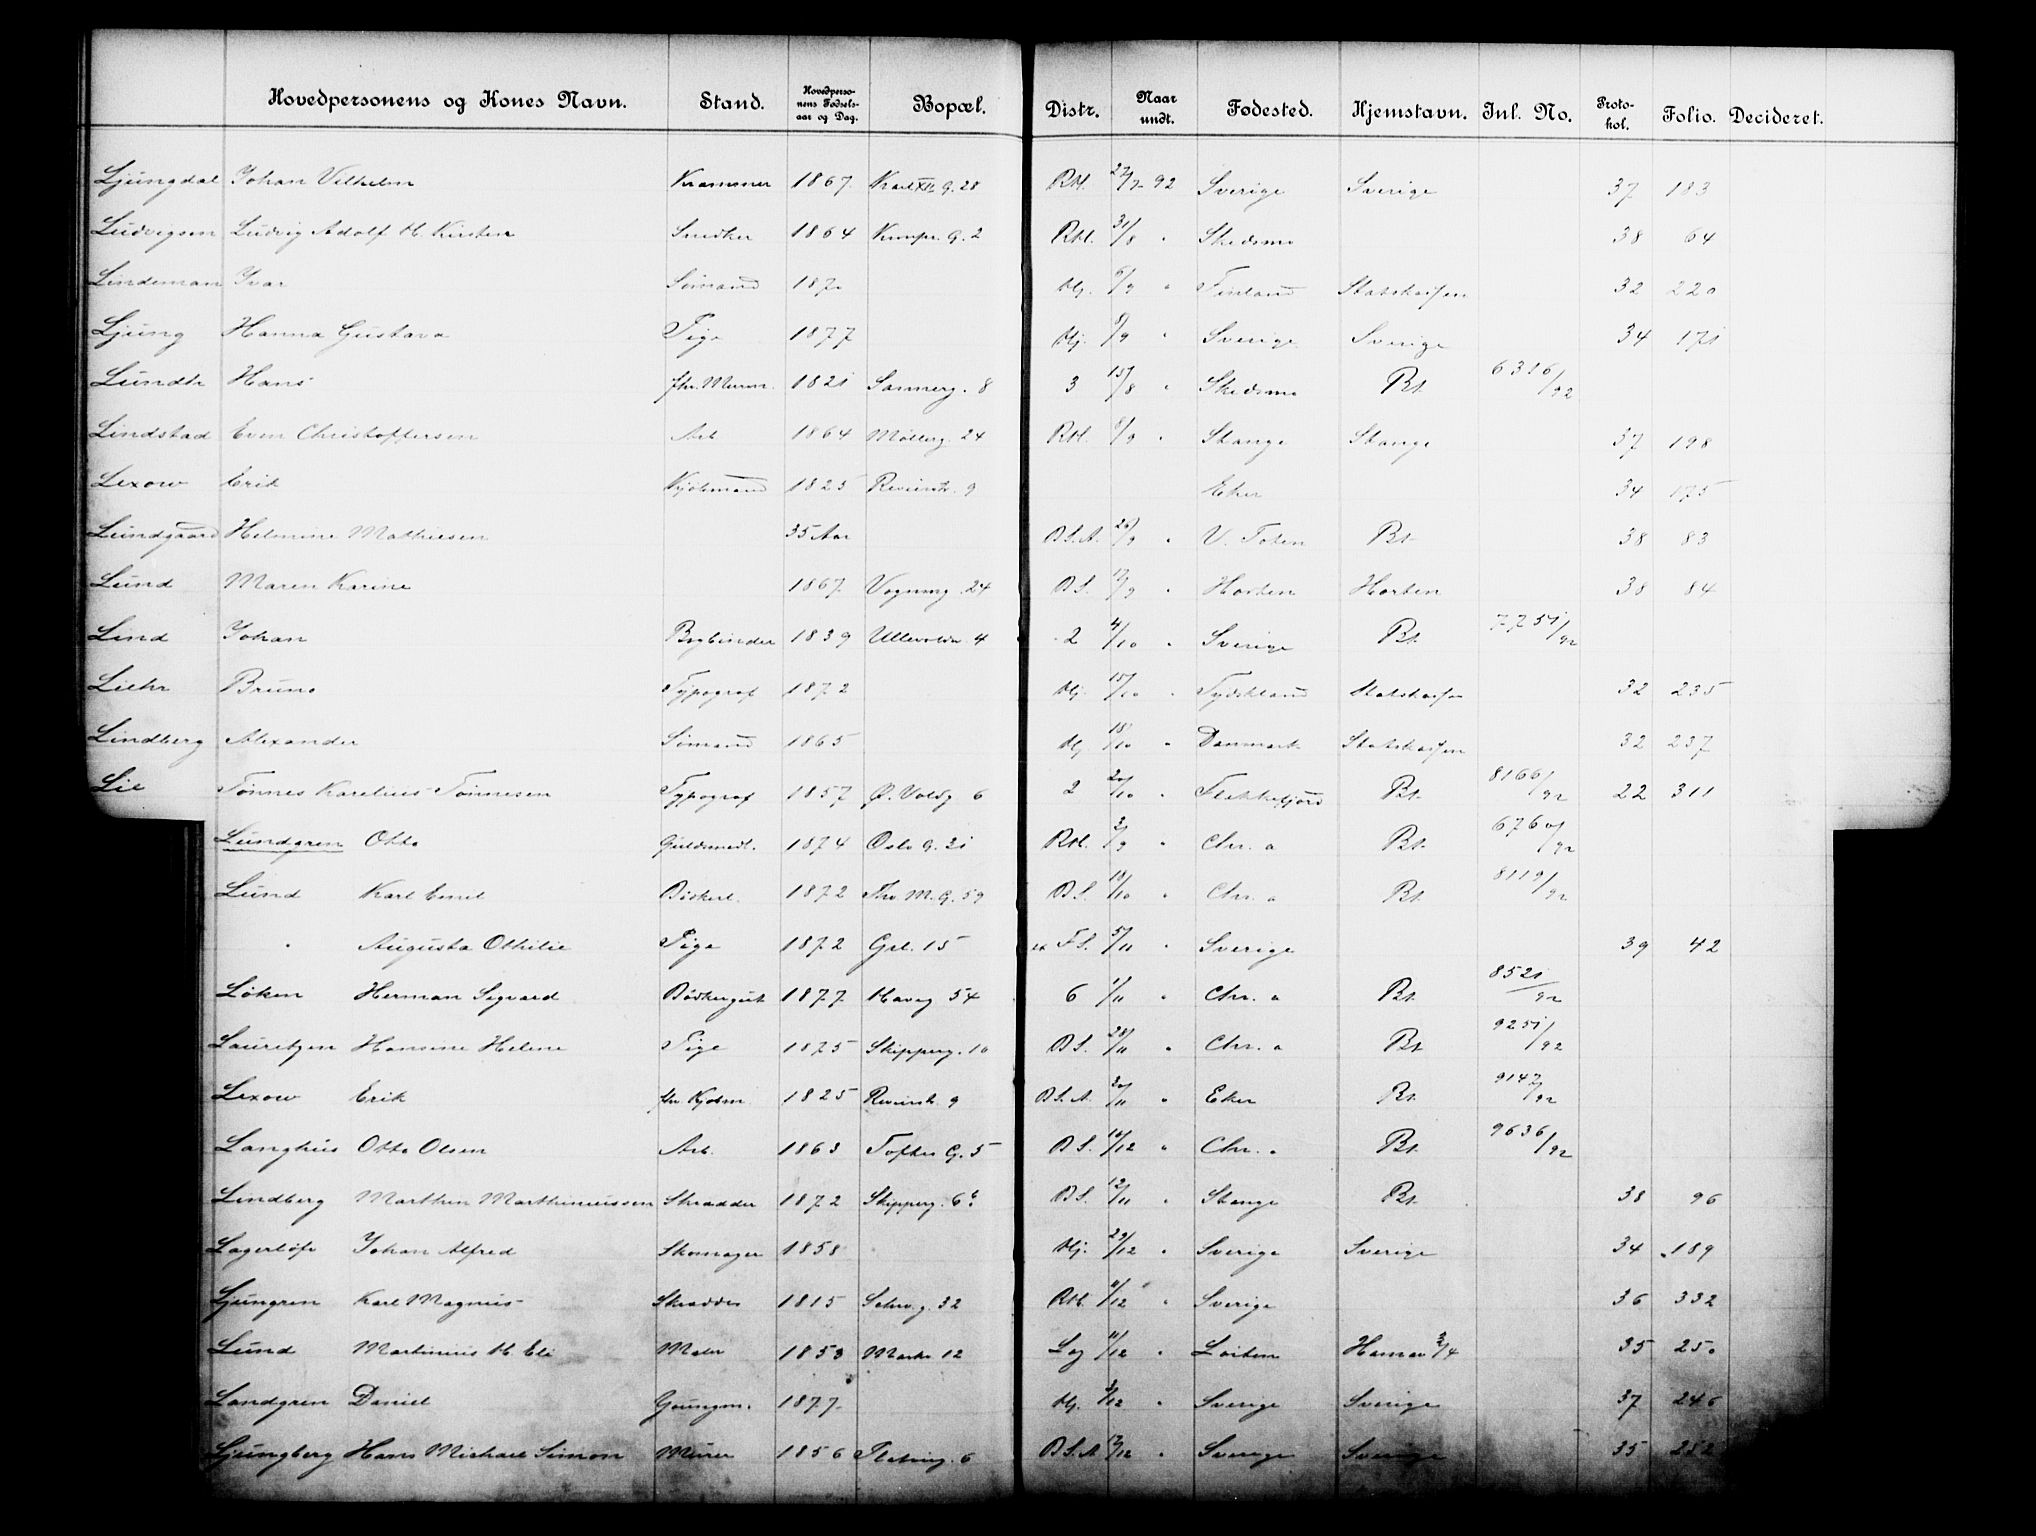 Hovedpersonens og Kones Navn. Stand. Hovedpersonens Fødselsaar og Dag. Bopæl. Distr. Naar undt. Fødested. Hjemstavn. Inl. No. Protokol. Folio. Decideret.
Ljungdal Johan Vilhelm 1867 Karl XII G. 28 Rtl. 92 Sverige Sverige 37 183
Ludvigsen Ludvig Adolf H. Kirsten Snedker 1864 G. 2 Rtl. 31/8 " Skedsmo 38 64
Lindeman Ivar Sømand 1870 Hj. 6/9 " Finland Statskassen 32 220
Ljung Hanna Gustava Pige 1877 Hj. 8/9 " Sverige Sverige 34 171
Hans fhv. Murm. 1821 Sannerg. 8 3 15/8 " Skedsmo Bt. 6316/92
Lindstad Even Christoffersen Arb 1864 Møllerg. 24 Rtl. 8/9 " Stange Stange 37 198
Lexow Erik Kjøbmand 1825 9 Eker 34 175
Lundgaard Helmine Mathiesen 35 Aar B.S.A. 26/9 " V. Toten Bt. 38 83
Lund Maren Karine 1867 Vognmg. 24 B.S. " Horten Horten 38 84
Lind Johan Bogbinder 1839 Ullevoldsv 4 2 4/10 " Sverige Bt. 7751/92
Liehr Bruno Typograf 1872 Hj. 15/10 " Tydskland Statskassen 32 235
Lindberg Alexander Sømand 1865 Hj. 18/10 " Danmark Statskassen 32 237
Lie Tønnes Karelius Tønnesen Typograf 1857 Ø. Voldg 6 2 20/10 " Flekkefjord Bt. 8166/92 22 311
Lundgren Otto Guldsmedl. 1874 Oslo G. 21 Rtl. 2/9 " Chr. a Bt. 6760/92
Lund Karl Emil 1872 Thv. M. G. 59 B.S. 18/10 " Chr. a Bt. 8119/92
" Augusta Othilie Pige 1872 Grl. 15 F.S. 5/11 " Sverige 39 42
Løken Herman Sigvard Bødkergut 1877 Haveg 54 6 1/11 " Chr. a Bt. 8521/92
Lauretzen Hansine Helene Pige 1875 Skipperg. 10 B.S. 28/11 " Chr. a Bt. 9251/92
Lexow Erik fhv. Kjøbm. 1825 9 B.S.A. " Eker Bt. 9147/92
Langhus Otto Olsen Arb. 1863 Toftes G. 5 B.S. 10/12 " Chr. a Bt. 9636/92
Lindberg Marthin Marthinussen Skrædder 1872 Skipperg. 6b B.S. 12/11 " Stange Bt. 38 96
Lagerlöf Johan Alfred Skomager 1858 Hj. 29/12 " Sverige Sverige 34 189
Ljungren Karl Magnus Skrædder 1815 Schv. g. 32 Rtl. 11/12 " Sverige 36 332
Lund Martinius H. Eli Maler 1853 Markv 12 Lag 11/12 " Løiten Hamar 3/4 35 250
Landgren Daniel 1877 Hj. 3/12 " Sverige Sverige 37 246
Ljungberg Hans Michael Simon Murer 1856 6 B.S.A. 12/12 " Sverige Sverige 35 252